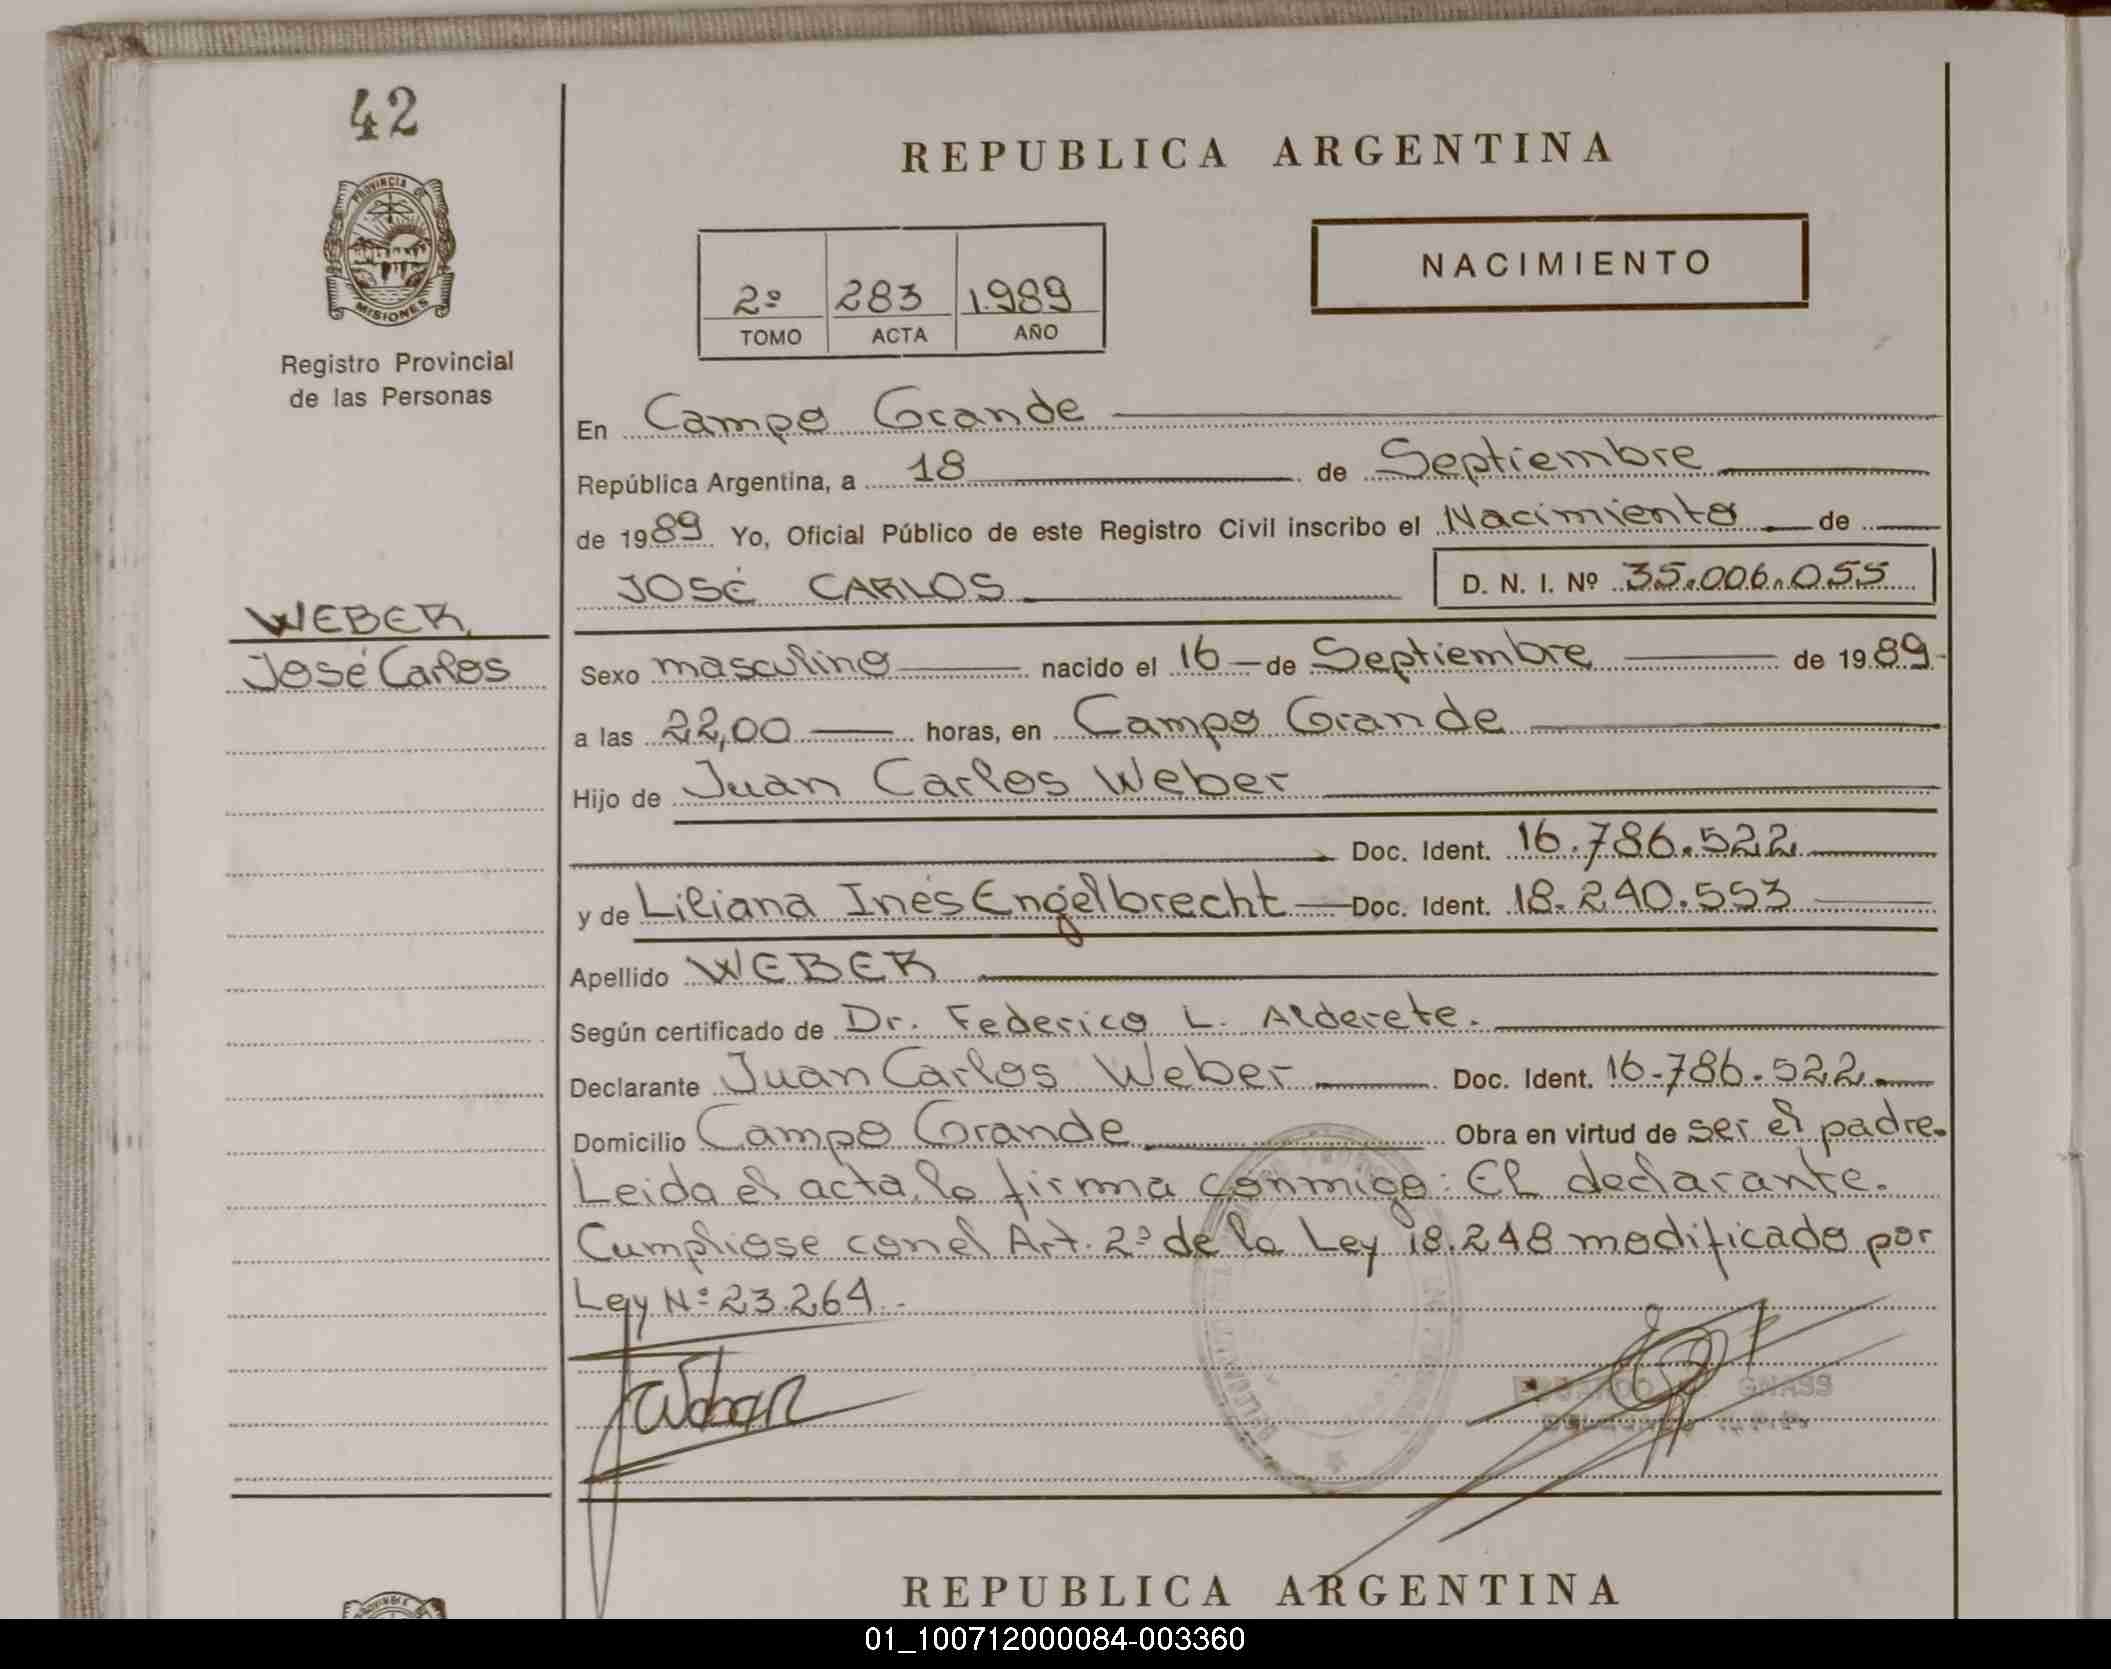 42
PROVINCIA DE
MISIONES
Registro Provincial
de las Personas
WEBER
José Carlos
REPUBLICA ARGENTINA
2º 283 1.989
TOMO ACTA AÑO
NACIMIENTO
En Campo Grande
República Argentina, a 18 de Septiembre
de 1989 Yo, Oficial Público de este Registro Civil inscribo el Nacimiento de
JOSÉ CARLOS D. N. I. Nº 35.006.055
Sexo masculino nacido el 16 de Septiembre de 1989
a las 22,00 horas, en Campo Grande
Hijo de Juan Carlos Weber
Doc. Ident. 16.786.522
y de Liliana Inés Engelbrecht Doc. Ident. 18.240.553
Apellido WEBER
Según certificado de Dr. Federico L. Alderete.
Declarante Juan Carlos Weber Doc. Ident. 16.786.522
Domicilio Campo Grande Obra en virtud de ser el padre.
Leida el acta, lo firma conmigo: El declarante.
Cumpliose con el Art. 2º de la Ley 18.248 modificado por
Ley Nº 23.264.-
REPUBLICA ARGENTINA
01_100712000084-003360